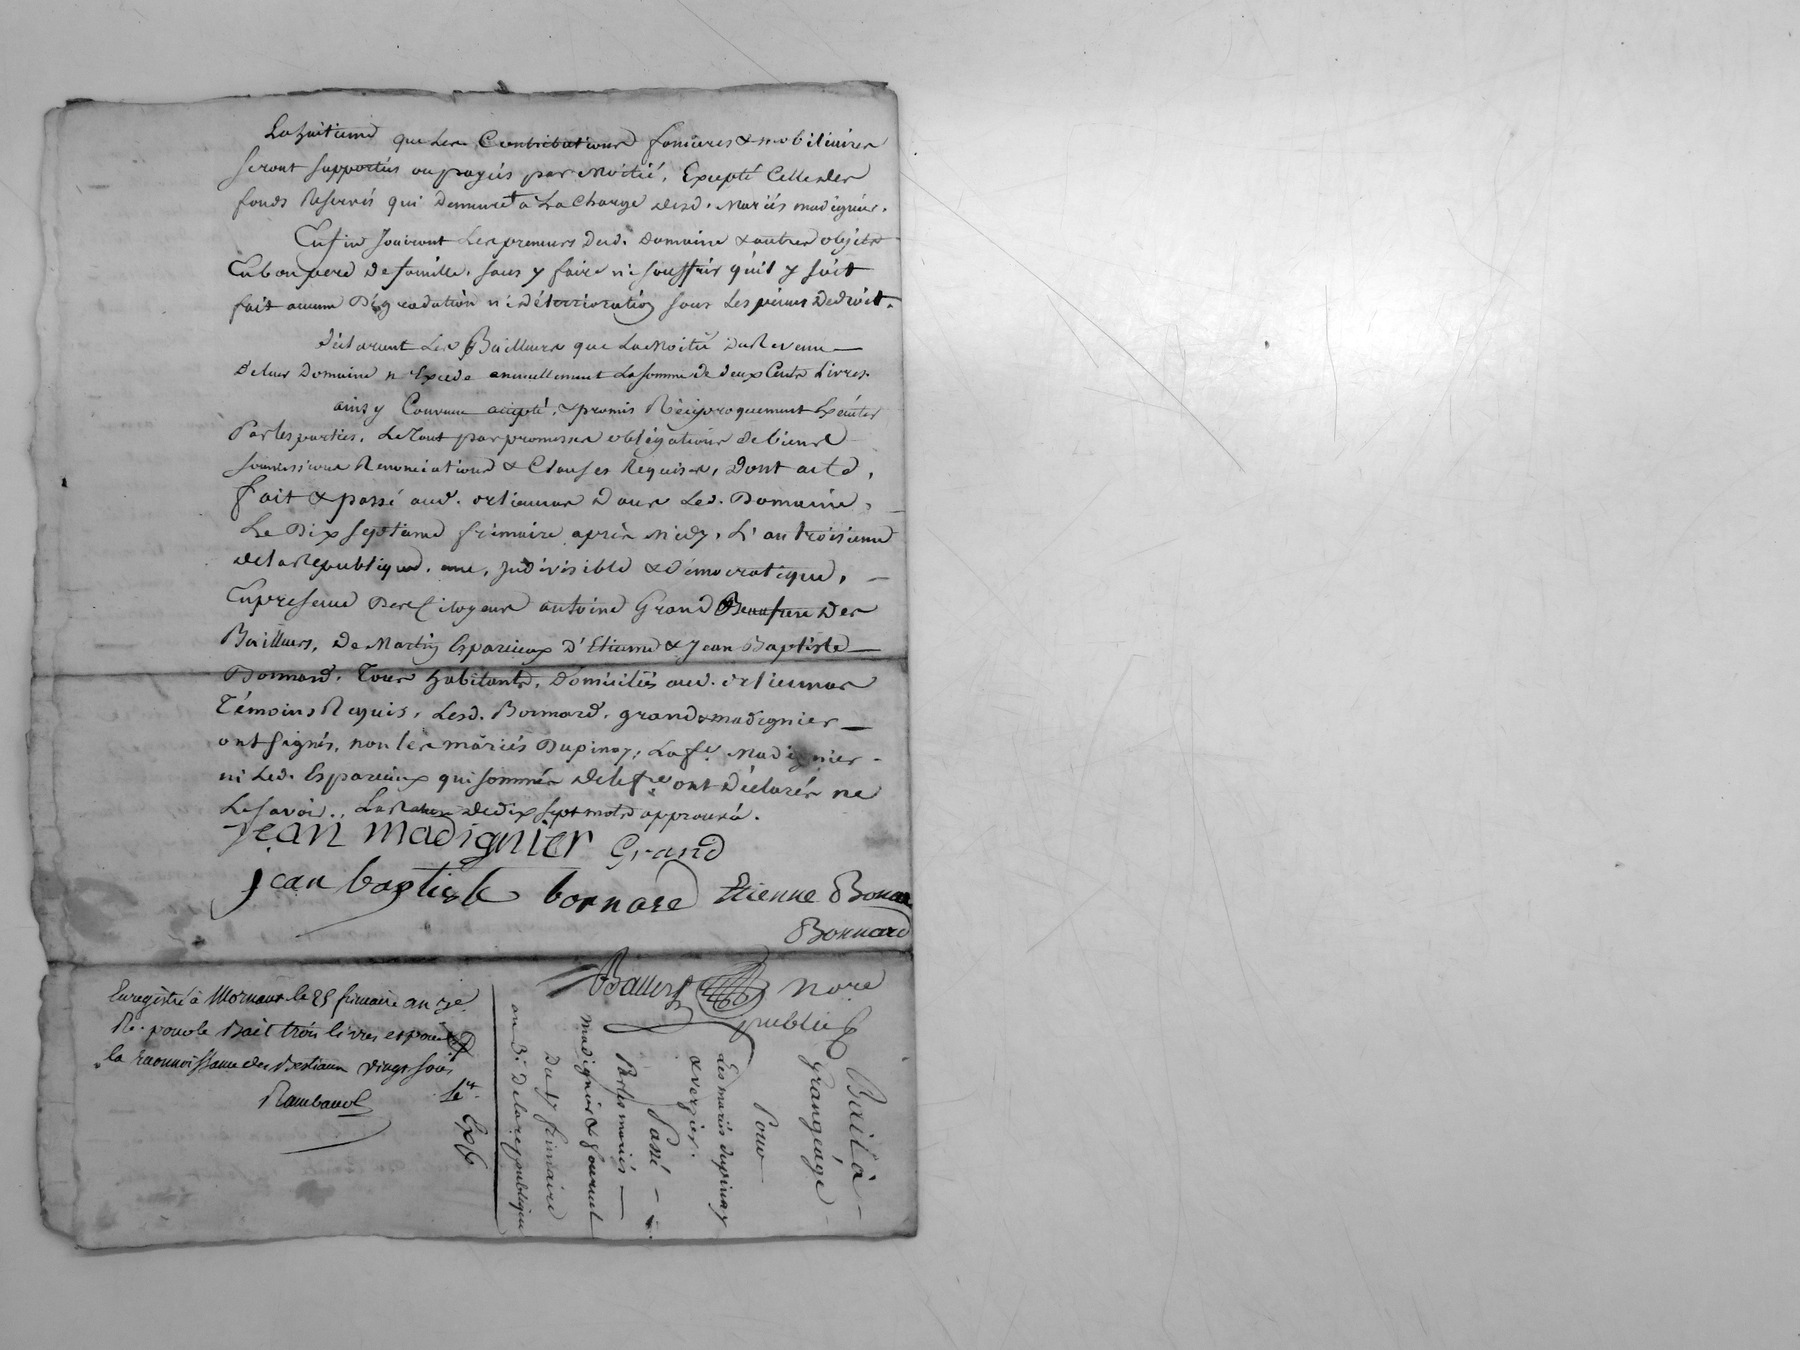 La huitieme que les Contributions foncieres & mobiliaires
seront supportés ou payés par moitié, Excepté Celle des
fonds Reservés qui Demeure a La Charge desd. mariés madignier.
Enfin Jouiront Les preneurs Dud. Domaine & autres objets
En bon pere de famille, sans y faire ni souffrir quil y soit
fait aucune Dégradation ni déterrioration sous Les peines De droit.
déclarent Les Bailleurs que La moitié Du Revenu
De leur Domaine n'Excede annuellement La somme de deux Cents Livres.
ainsy Convenu accepté, & promis Réciproquement Exécuter
Par les parties, Le Tout par promesses obligations de biens
soumissions Renonciations & Clauses Requises, Dont acte,
fait & passé aud. orlienas Dans Led. Domaine,
Le Dix septieme frimaire après midy, L'an troisieme
de la Republique, une, Indivisible & démocratique,
En presence Des Citoyens antoine Grand Beaufrere Des
Bailleurs, De Martin Esparieux d'Etienne & Jean Baptiste
Bonnard, Tous habitants, domiciliés aud. orlienas
Témoins Requis, Lesd. Bonnard, grand & madignier
ont signés, non les mariés Dupinay, La fe. Madignier
ni Led. Esparieux qui sommés de le fre. ont Déclarés ne
Le savoir., La Rature de dix sept mots approuvée.
jean madignier Grand
jean baptiste bonnard Etienne Bonar
Bonnard
Enregistré à Mornant le 25 frimaire an 3e
Re. pour le Bail trois livres et pour
la reconnoissance des Bestiaux vingt sous
Rambaud
Exp
Nore
public
Bail à
Grangeage
Pour
Les mariés dupinay
& vergier.
Passé
Par les mariés
madignier & fournel
Du 17 frimaire
an 3e. De la republique